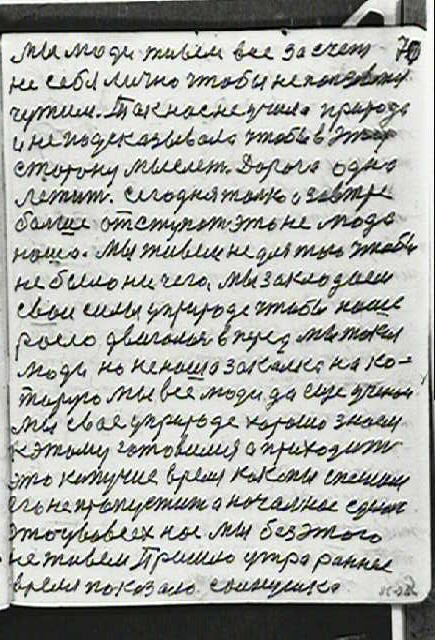 мы люди живем все за счет 70
не себя лично чтобы не
чужим. Так нас не учила природа
и не подсказывала чтобы в эту
сторону мыслет. Дорога одна
лежит. сегодня только а завтре
больше отступат это не мода
наша. мы живем не для того чтобы
не было ни чего, мы закладаем
свои силы у природе чтобы наше
росло двигалося в перед мы такия
люди но не наша закалка на ко-
торую мы все люди да еще ученыи
мы свае у природе хорошо знаем
к этому готовимся а приходит
это кипучие время как мы спешим
его не пропустит а начал нас
это у во всех нас мы без этого
не живем Пришло утра раннее
время показало солнушко